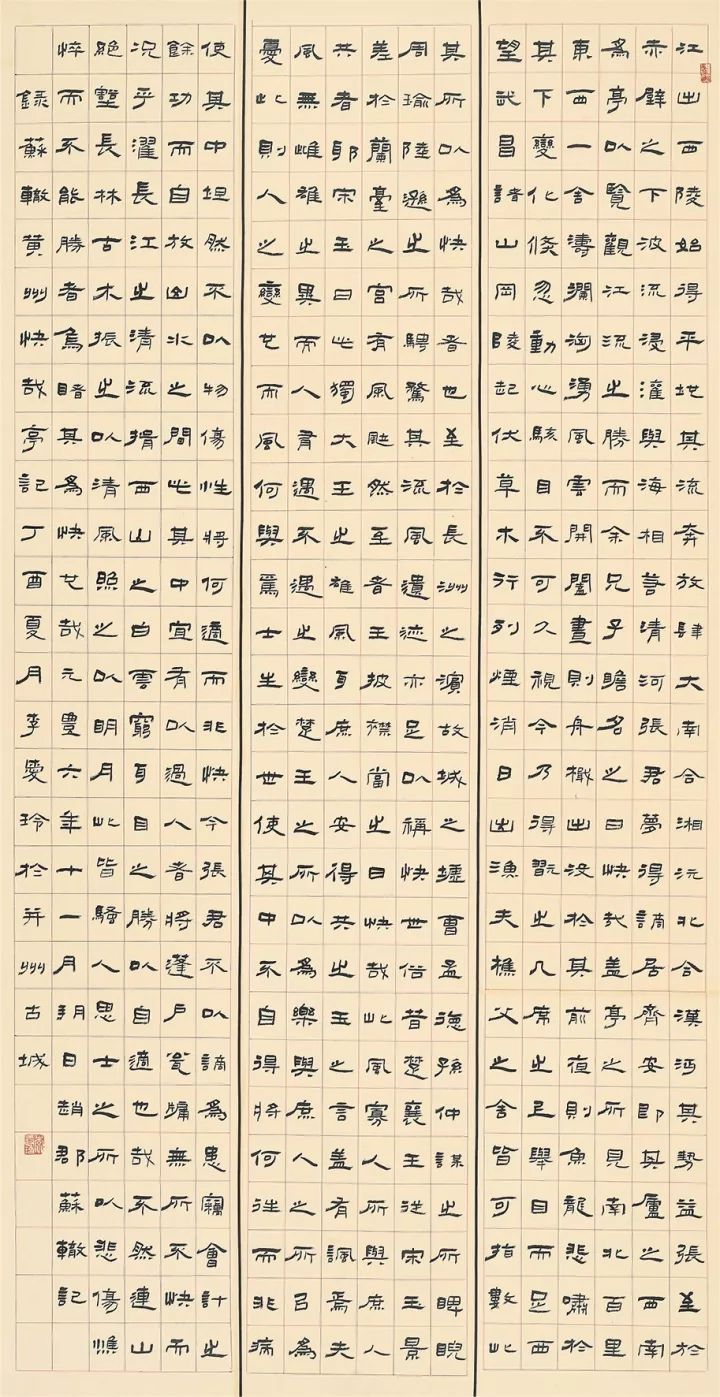 江出西陵始得平地其流奔放肆大南合湘沅北合漢沔其勢益張至於
赤壁之下波流浸灌與海相若清河張君夢得謫居齊安即其廬之西南
為亭以覽觀江流之勝而余兄子瞻名之曰快哉蓋亭之所見南北百里
東西一舍濤瀾洶湧風雲開闔晝則舟楫出沒於其前夜則魚龍悲嘯於
其下變化倏忽動心駭目不可久視今乃得翫之几席之上舉目而足西
望武昌諸山岡陵起伏草木行列煙消日出漁夫樵父之舍皆可指數此
其所以為快哉者也至於長洲之濱故城之墟曹孟德孫仲謀之所睥睨
周瑜陸遜之所騁騖其流風遺迹亦足以稱快世俗昔楚襄王從宋玉景
差於蘭臺之宮有風颯然至者王披襟當之曰快哉此風寡人所與庶人
共者耶宋玉曰此獨大王之雄風耳庶人安得共之玉之言蓋有諷焉夫
風無雌雄之異而人有遇不遇之變楚王之所以為樂與庶人之所以為
憂此則人之變也而風何與焉士生於世使其中不自得將何往而非病
使其中坦然不以物傷性將何適而非快今張君不以謫為患竊會計之
餘功而自放山水之間此其中宜有以過人者將蓬戶甕牖無所不快而
況乎濯長江之清流揖西山之白雲窮耳目之勝以自適也哉不然連山
絕壑長林古木振之以清風照之以明月此皆騷人思士之所以悲傷憔
悴而不能勝者烏睹其為快也哉元豊六年十一月朔日趙郡蘇轍記
錄蘇轍黃州快哉亭記丁酉夏月李愛玲於并州古城